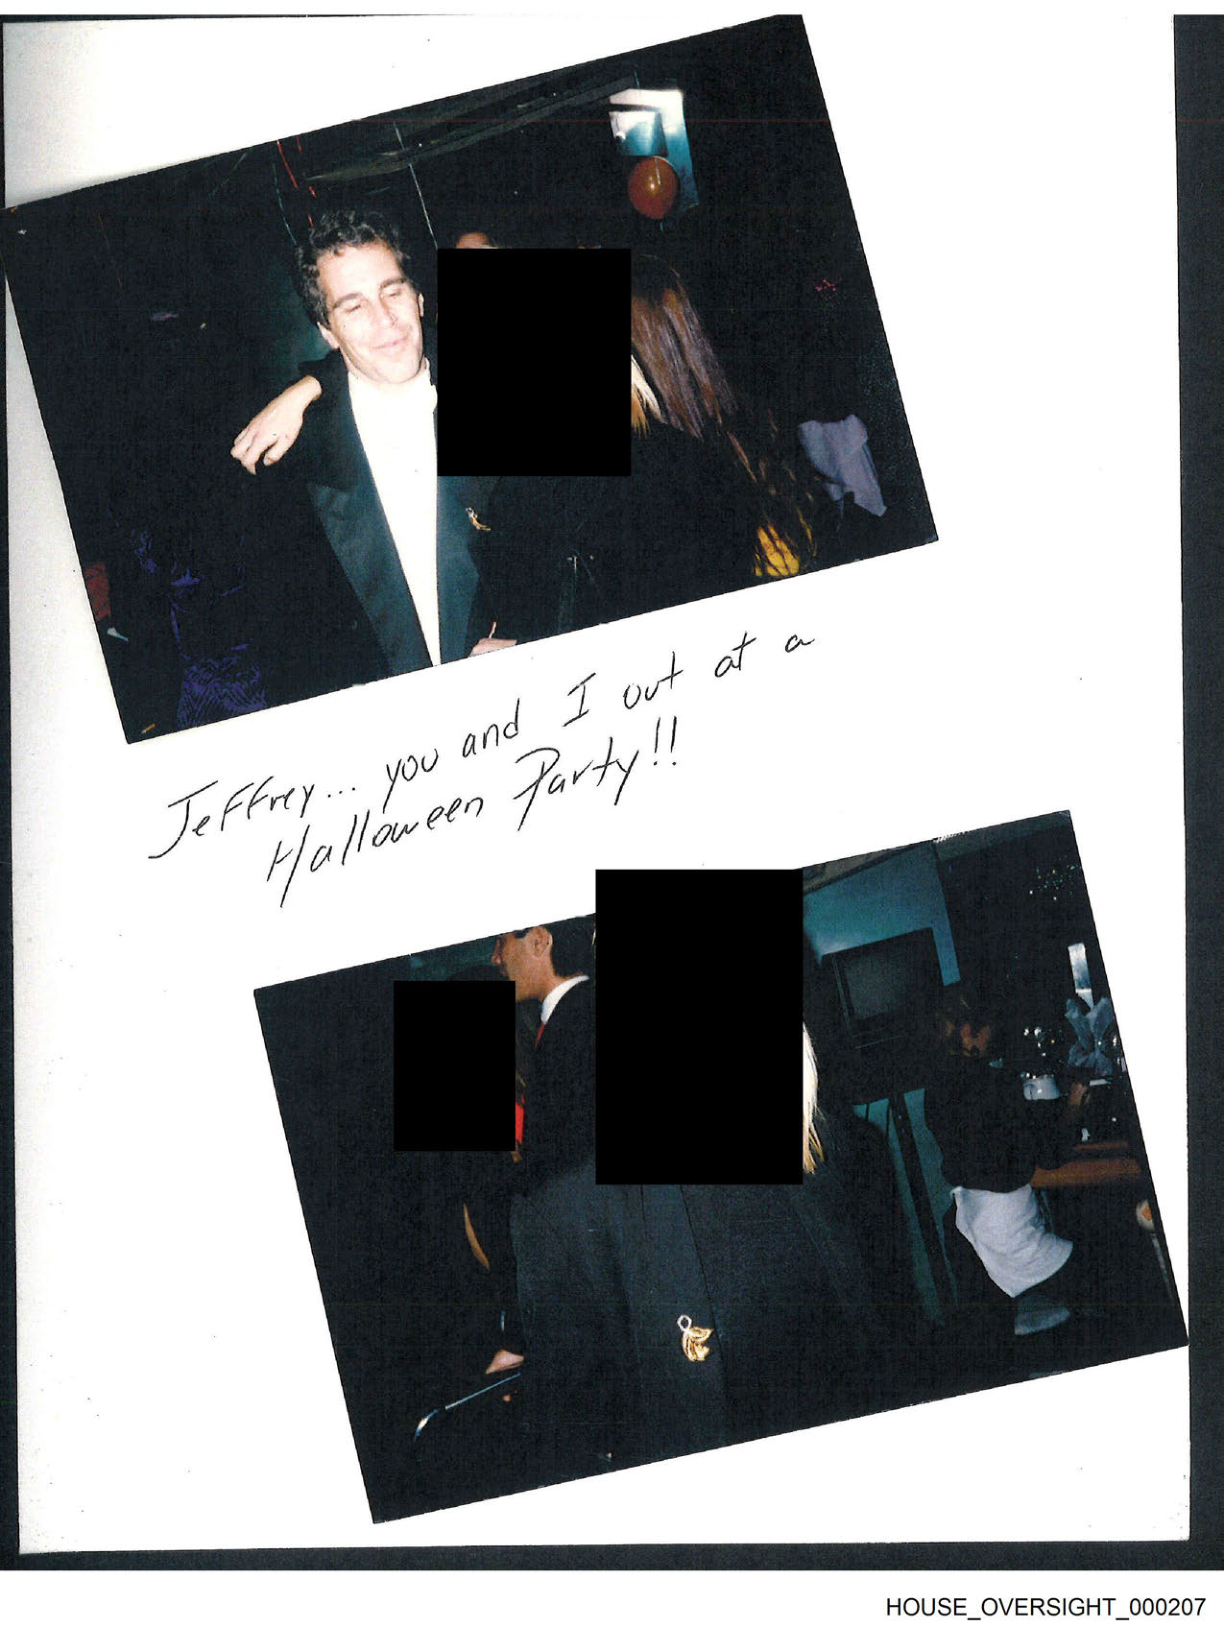 Jeffrey... you and I out at a
Halloween Party!!
HOUSE_OVERSIGHT_000207